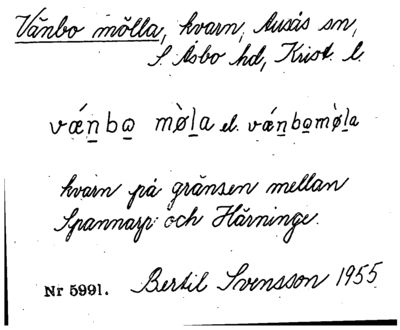 Vänbo mölla, kvarn, Ausås sn,
S. Åsbo hd, Krist. l.
vǽnbo mø̀la el. vǽnbomø̀la
kvarn på gränsen mellan
Spannarp och Härninge.
Nr 5991. Bertil Svensson 1955